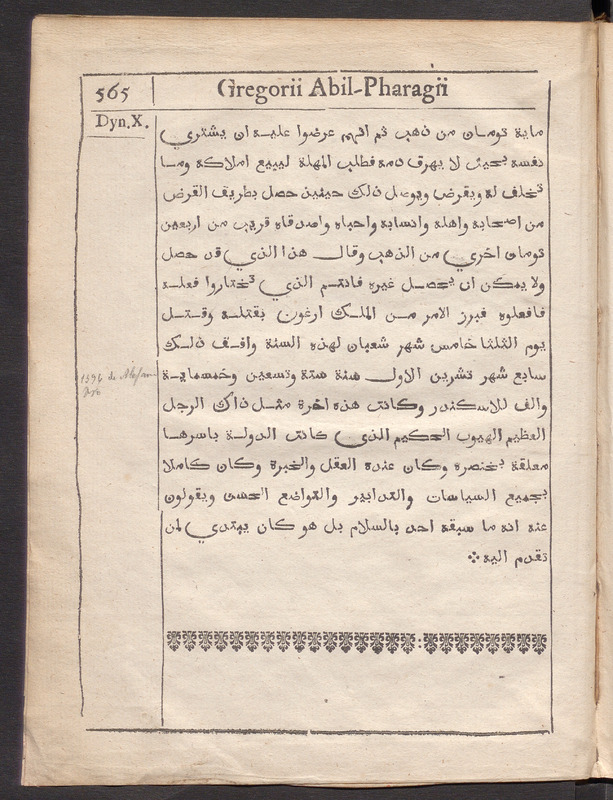 565
Gregorii Abil-Pharagii
Dyn.X.
ماية تومان من ذهب ثم انهم عرضوا عليه ان يشتري
نفسه بحيث لا يهرق دمه فطلب المهلة ليبيع املاكه وما
تخلف له ويقرض ويوصل ذلك حينيذ حصل بطريق القرض
من اصحابه واهله وانسابه واحباه واصدقاه قريب من اربعين
تومان اخري من الذهب وقال هذا الذي قد حصل
ولا يمكن ان يحصل غيره فانتم الذي تختاروا فعله
فافعلوه فبرز الامر من الملك ارغون بقتله وقتل
يوم الثلثا خامس شهر شعبان لهذه السنة وافق ذلك
سابع شهر تشرين الاول سنة ستة وتسعين وخمسماية
والف للاسكندر وكانت هذه اخرة مثل ذاك الرجل
العظيم المهيوب الحكيم الذي كانت الدولة باسرها
معلقة بخنصره وكان عنده العقل والخبرة وكان كاملا
بجميع السياسات والتدابير والتواضع الحسن ويقولون
عنه انه ما سبقه احد بالسلام بل هو كان يبتدي لمن
تقدم اليه
1596 de